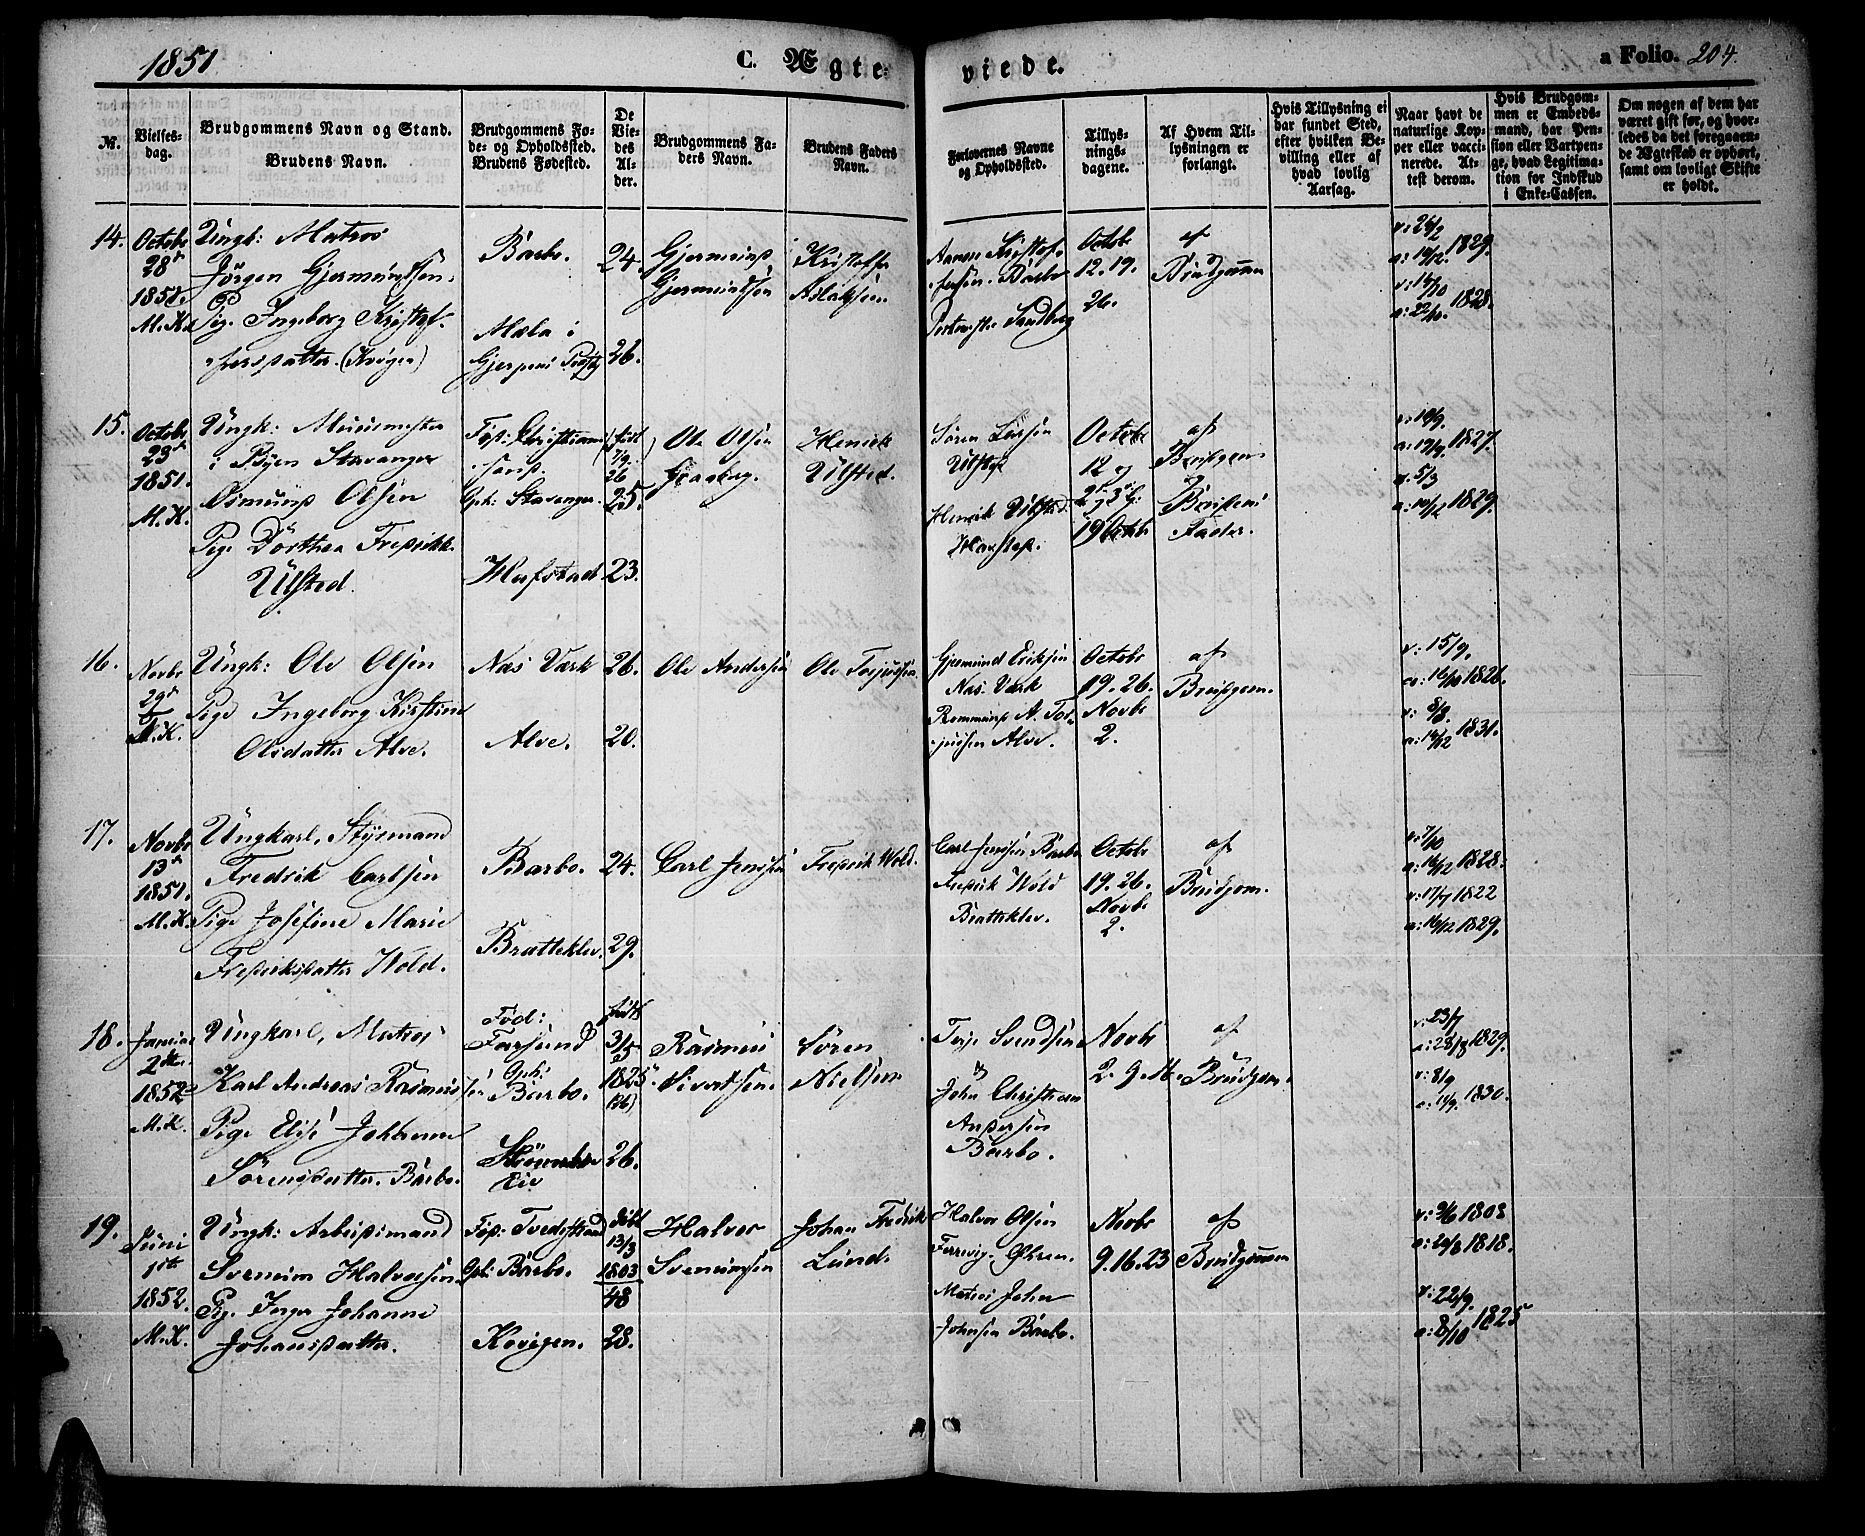 1851
C. Ægte-
viede.
a Folio. 204.
№.
Vielses-
dag.
Brudgommens Navn og Stand.
Brudens Navn.
Brudgommens Fø-
de- og Opholdssted.
Brudens Fødested.
De
Vie-
des
Al-
der.
Brudgommens Fa-
ders Navn.
Brudens Faders
Navn.
Forlovernes Navne
og Opholdssted.
Tillys-
nings-
dagene.
Af Hvem Til-
lysningen er
forlangt.
Hvis Tillysning ei
har fundet Sted,
efter hvilken Be-
villing eller af
hvad lovlig
Aarsag.
Naar havt de
naturlige Kop-
per eller vacci-
nerede. At-
test derom.
Hvis Brudgom-
men er Embeds-
mand, har Pen-
sion eller Vartpen-
ge, hvad Legitima-
tion for Indskud
i Enke-Cassen.
Om nogen af dem har
været gift før, og hvor-
ledes da det foregaaen-
de Ægteskab er ophørt,
samt om lovligt Skifte
er holdt.
14.
Octobr
28d
1851.
M.K.
Ungk: Matros
Jörgen Gjermundsen.
Pig. Ingeborg Kristof-
fersdatter. (Krögen)
Barbo.
Mæla i
Gjerpens
24.
26.
Gjermund
Gjermundsen
Kristoffer
Aslaksen
Barbo
Sandberg
Octobr
12. 19.
26.
af
Brudgommen
v: 26/2
a: 19/12 1829.
v: 14/10
a: 22/10 1828.
15.
Octobr
23d
1851.
M.K.
Ungk: Muurmester
i Byen Stavanger
Osmund Olsen
Pige Dörthea Fredrikke
Ulsted.
Föd: Christian-
sand.
Oph: Stavanger.
Hafstad
(födt
7/9
26
25.
23.
Ole Olsen
Henrik
Ulsted.
Sören
Ulsted
Henrik Ulsted
Hafsted.
Octobr
12 og
2d og 3d G:
19 Octobr
af
Brudgom.
og
Brudens
Fader.
v: 14/9.
a: 19/9 1827.
v. 5/3
a: 10/12 1829.
16.
Novbr
29d
M.K.
Ungk: Ole Olsen
Pige Ingeborg Kirstine
Olsdatter Alve.
Næs Værk
Alve.
26.
20.
Ole Andersen
Ole Torjusen
Gjermund Eriksen
Næs Værk
A. Tor-
jusen Alve.
Octobr
19. 26.
Novbr
2.
af
Brudgom.
v: 15/9.
a: 16/10 1826.
v: 8/8.
a: 14/12 1831.
17.
Novbr
13d
1851.
M.K.
Ungkarl, Styrmand
Fredrik Carlsen
Pige Josefine Marie
Fredriksdatter Wold.
Barbo.
Bratteklev.
24.
29.
Carl Jenssen
Fredrik Wold.
Carl Jenssen Barbo
Fredrik Wold
Bratteklev.
Octobr
19. 26.
Novbr
2.
af
Brudgom.
v: 7/10
a: 16/12 1828.
v: 17/7 1822
a: 16/12 1829.
18.
Januar
2den
1852
M.K.
Ungkarl, Matros
Karl Andreas Rasmussen
Pige Elise Johanne
Sörensdatter. Barbo.
Föd:
Farsund
Oph:
Barbo.
födt
3/5
1825.
(26)
26.
Rasmus
Sivertsen.
Sören
Nielsen
Terje Svendsen
og
John Christian
Andersen
Barbo.
Novbr
2. 9. 16.
af
Brudgom.
v: 23/7
a: 28/8 1829.
v: 8/9
a: 14/9. 1830.
19.
Juni
1ste
1852.
M.K.
Ungk: Arbeidsmand
Svenum Halvorsen
Pig. Inger Johanne
Johansdatter.
Föd: Tvedestrand
Oph: Barbo.
Kovigen.
födt
13/3
1803
48
28.
Halvor
Svenumsen
Johan Fredrik
Lund.
Halvor Olsen
Matros John
Johnsen Barbo.
Novbr
9. 16. 23
af
Brudgommen
v: 3/6 1808
a: 24/8 1818.
v: 22/9.
a: 8/10 1825